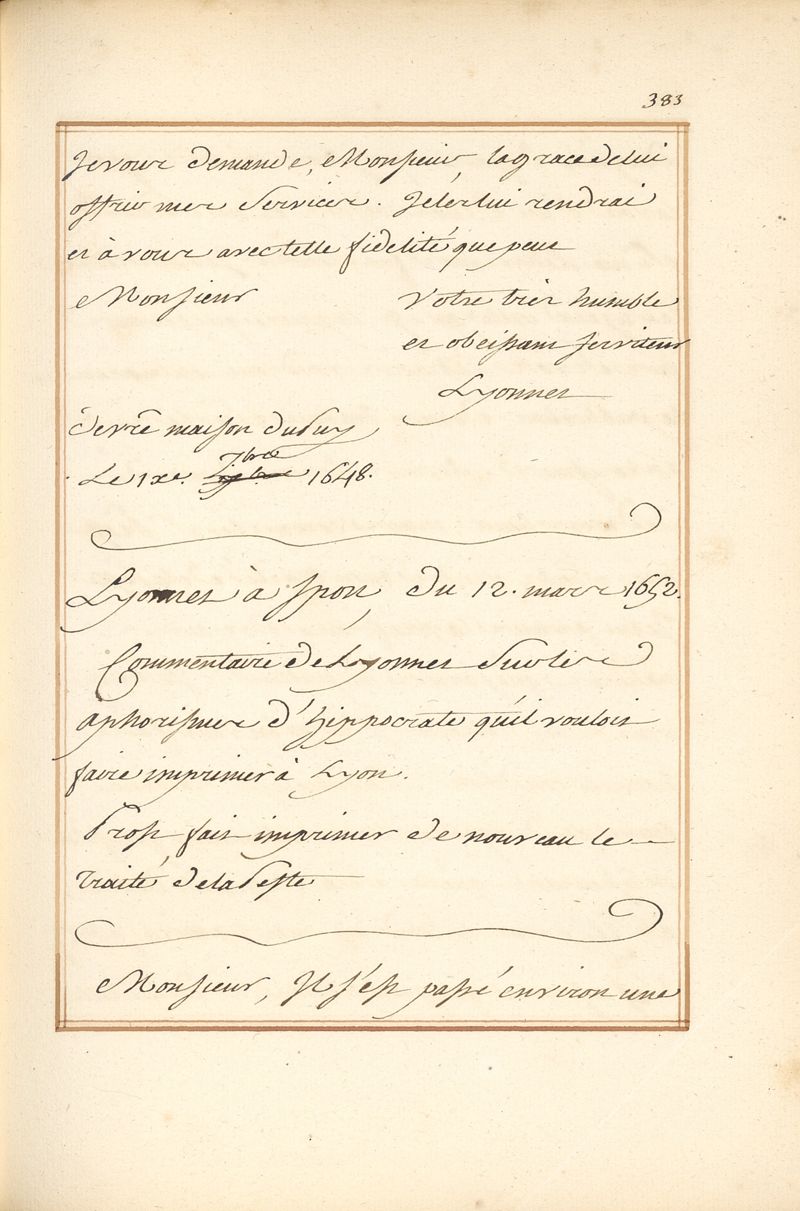 383
Je vous demande, Monsieur, la grace de lui
offrir mes services. Je les lui rendrai
et à vous avec telle fidelité que peut
Monsieur
Votre très humble
et obeissant serviteur
Lyonnet
de vrē maison du Puy
Le IXe. 7bre 1648.
Lyonnet à Spon, du 12. mars 1652.
Commentaire de Lyonnet sur les
aphorismes d'hippocrate qu'il vouloit
faire imprimer à Lyon.
Prost fait imprimer de nouveau le
traité de la Peste
Monsieur, Il s'est passé environ une